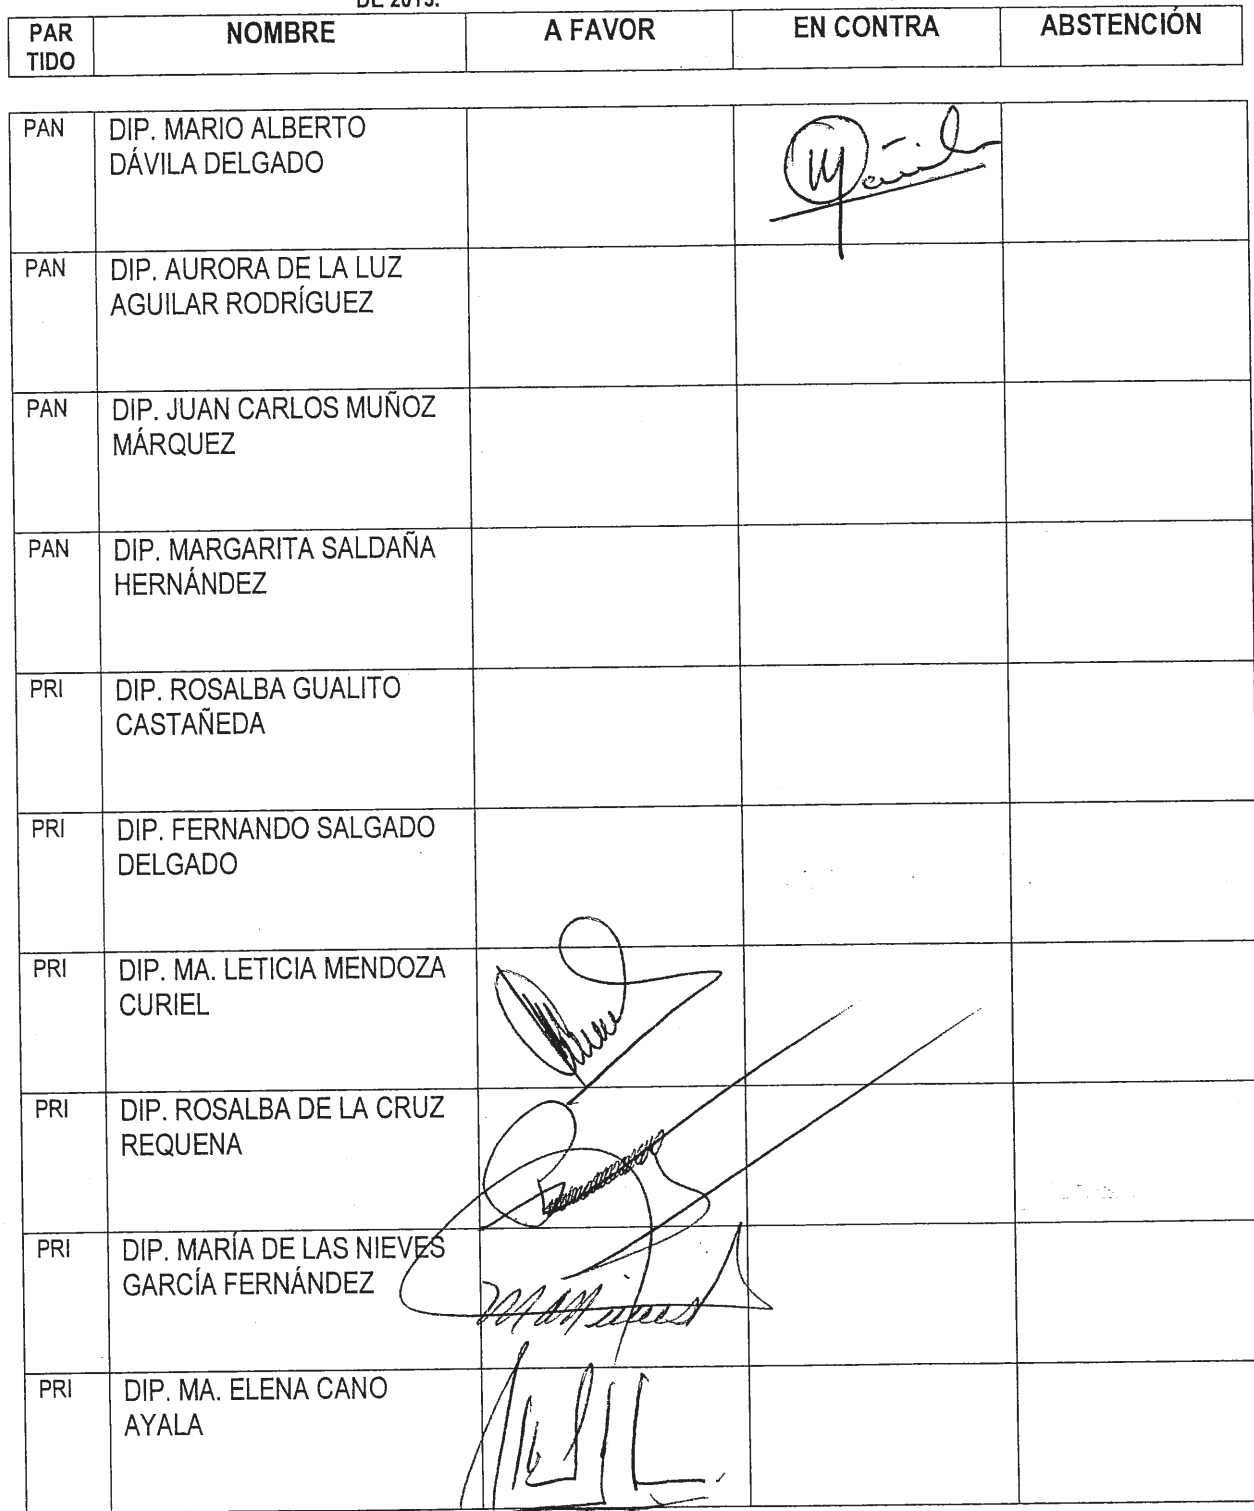 DE 2015.
PAR
TIDO
NOMBRE
A FAVOR
EN CONTRA
ABSTENCIÓN
PAN
DIP. MARIO ALBERTO
DÁVILA DELGADO
PAN
DIP. AURORA DE LA LUZ
AGUILAR RODRÍGUEZ
PAN
DIP. JUAN CARLOS MUÑOZ
MÁRQUEZ
PAN
DIP. MARGARITA SALDAÑA
HERNÁNDEZ
PRI
DIP. ROSALBA GUALITO
CASTAÑEDA
PRI
DIP. FERNANDO SALGADO
DELGADO
PRI
DIP. MA. LETICIA MENDOZA
CURIEL
PRI
DIP. ROSALBA DE LA CRUZ
REQUENA
PRI
DIP. MARÍA DE LAS NIEVES
GARCÍA FERNÁNDEZ
PRI
DIP. MA. ELENA CANO
AYALA